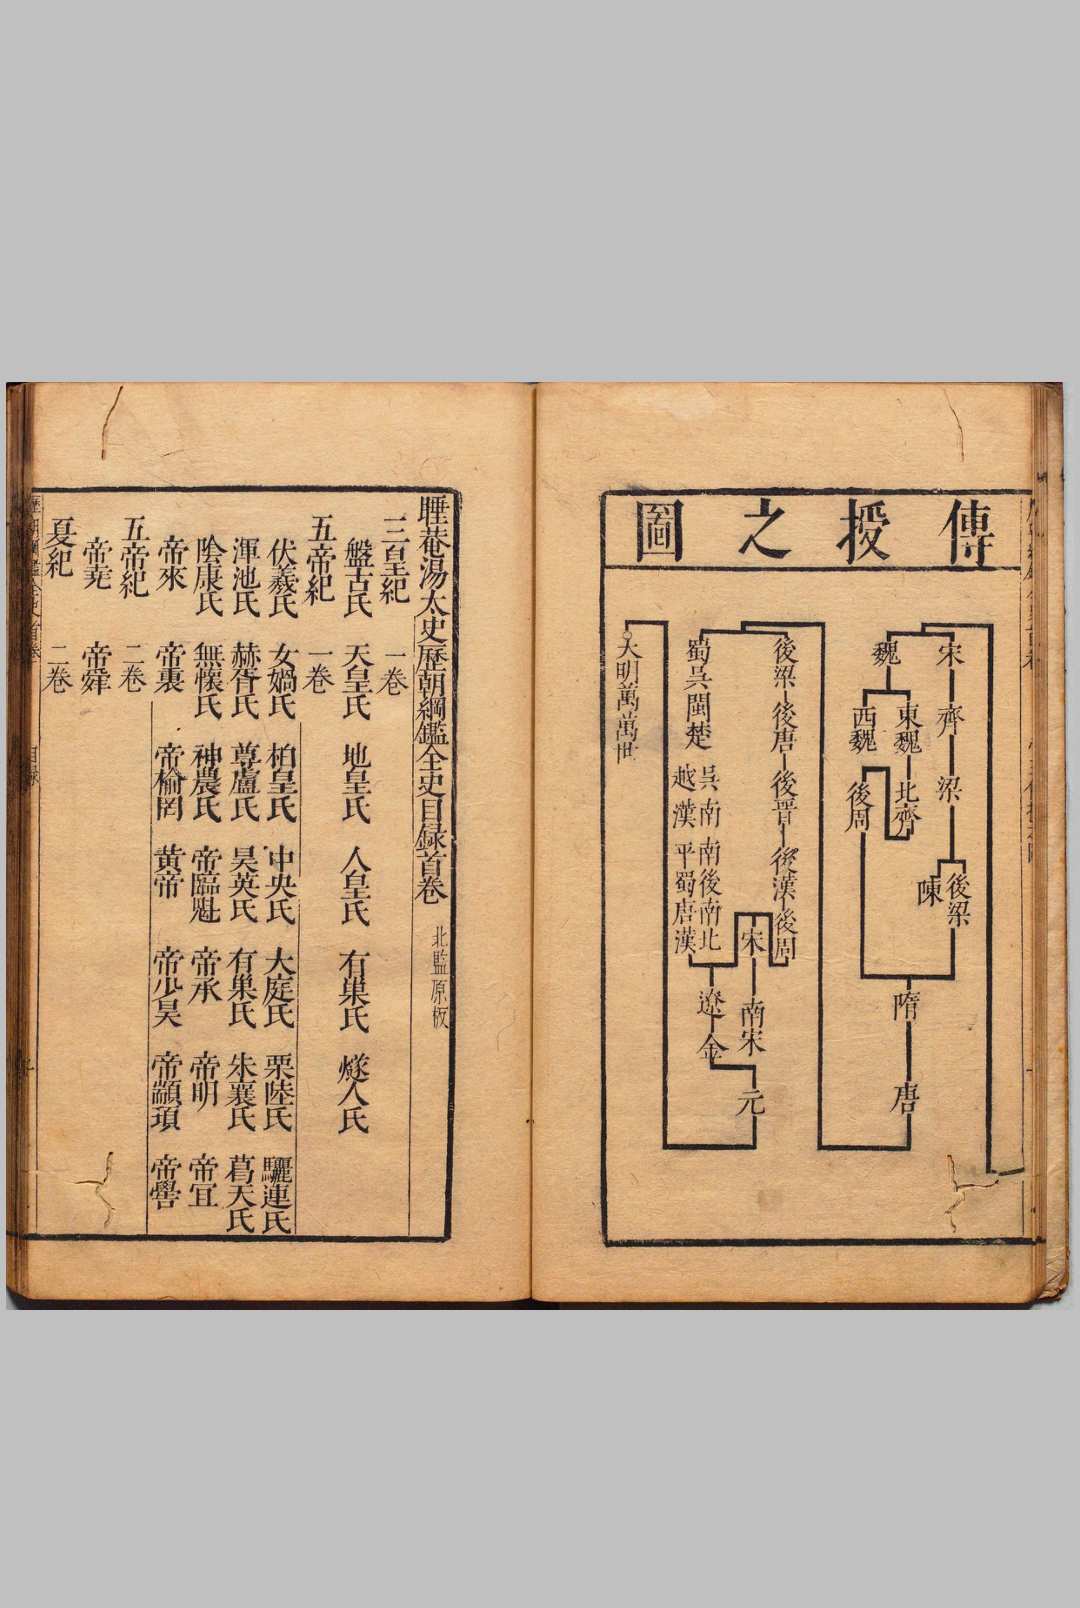 傳授之圖
宋
齊
梁
後梁
陳
魏
東魏
西魏
北齊
後周
隋
唐
後梁
後唐
後晉
後漢
後周
宋
南宋
元
蜀吳閩楚
吳越
南漢
南平
後蜀
南唐
北漢
遼
金
大明萬萬世
睡菴湯太史歷朝綱鑑全史目録首卷 北監原板
三皇紀 一卷
盤古氏 天皇氏 地皇氏 人皇氏 有巢氏 燧人氏
五帝紀 一卷
伏羲氏 女媧氏 柏皇氏 中央氏 大庭氏 栗陸氏 驪連氏
渾池氏 赫胥氏 尊盧氏 昊英氏 有巢氏 朱襄氏 葛天氏
陰康氏 無懷氏 神農氏 帝臨魁 帝承 帝明 帝宜
帝來 帝裏 帝榆罔 黄帝 帝少昊 帝顓頊 帝嚳
五帝紀 二卷
帝堯 帝舜
夏紀 二卷